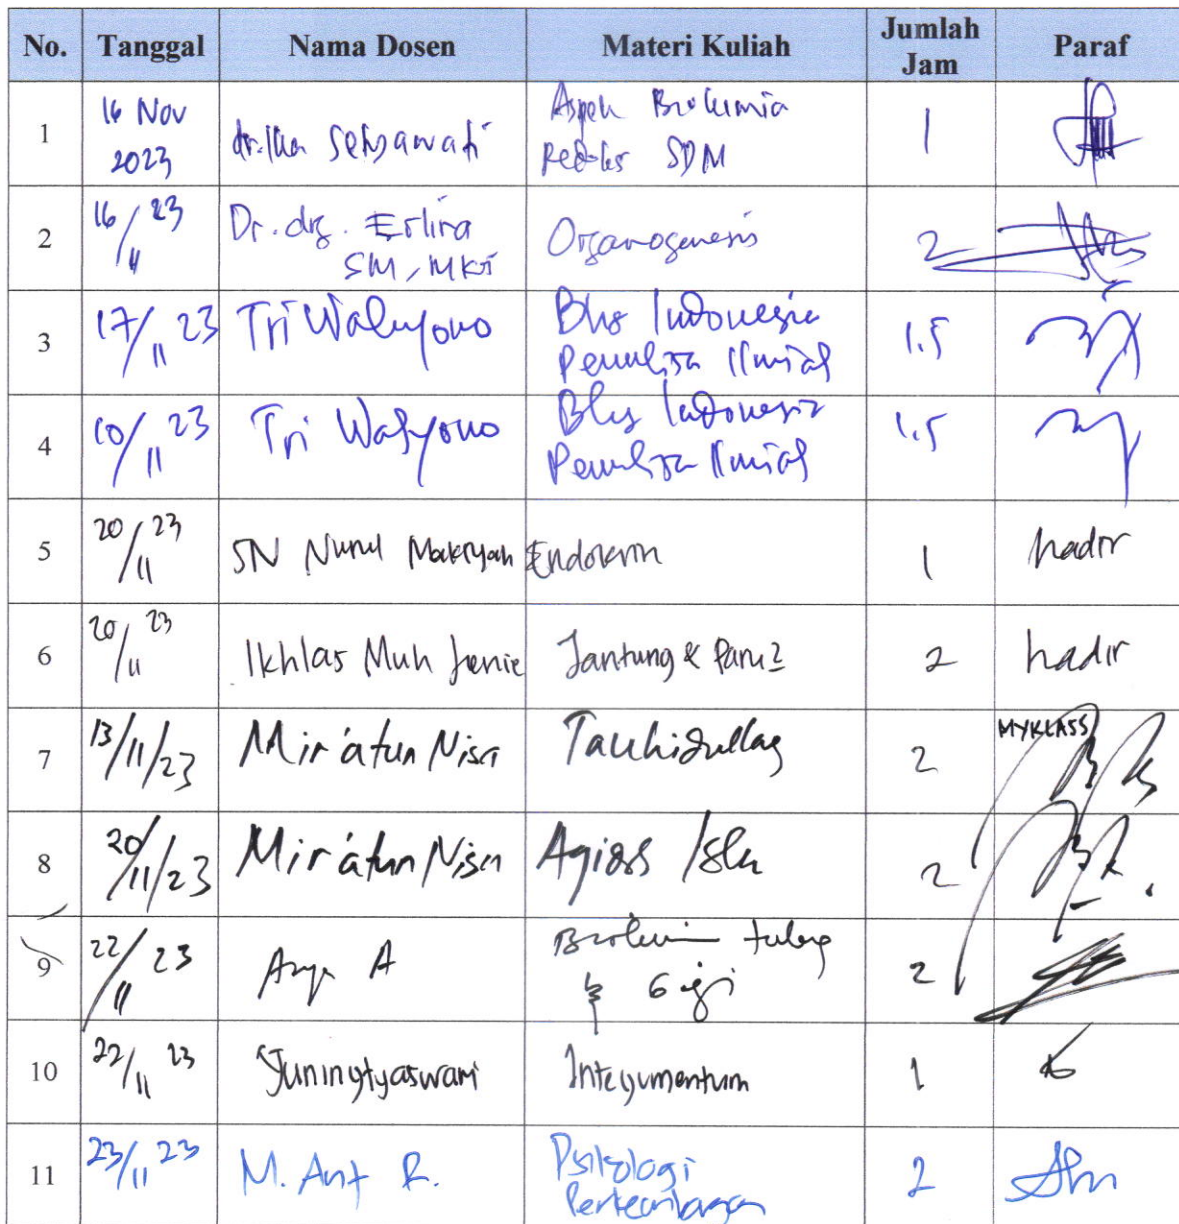 No. Tanggal Nama Dosen Materi Kuliah Jumlah Jam Paraf
1 16 Nov 2023 dr. Ika Setyawati Aspek Biokimia Redoks SDM 1
2 16/11 23 Dr. drg. Erlina SM, MKG Organogenesis 2
3 17/11 23 Tri Waluyono Bhs Indonesia Penulisa Ilmiah 1.5
4 10/11 23 Tri Waluyono Bhs Indonesia Penulisa Ilmiah 1.5
5 20/11 23 SN Nurul Makiyah Endokrin 1 hadir
6 20/11 23 Ikhlas Muh Jenie Jantung & Paru2 2 hadir
7 13/11/23 Mir'atun Nisa Tauhidullag 2 MYKLASS
8 20/11/23 Mir'atun Nisa 2
9 22/11 23 A & Gigi 2
10 22/11 23 Yuningtyaswari Integumentum 1
11 23/11 23 M. R. Psikologi Perkembangan 2